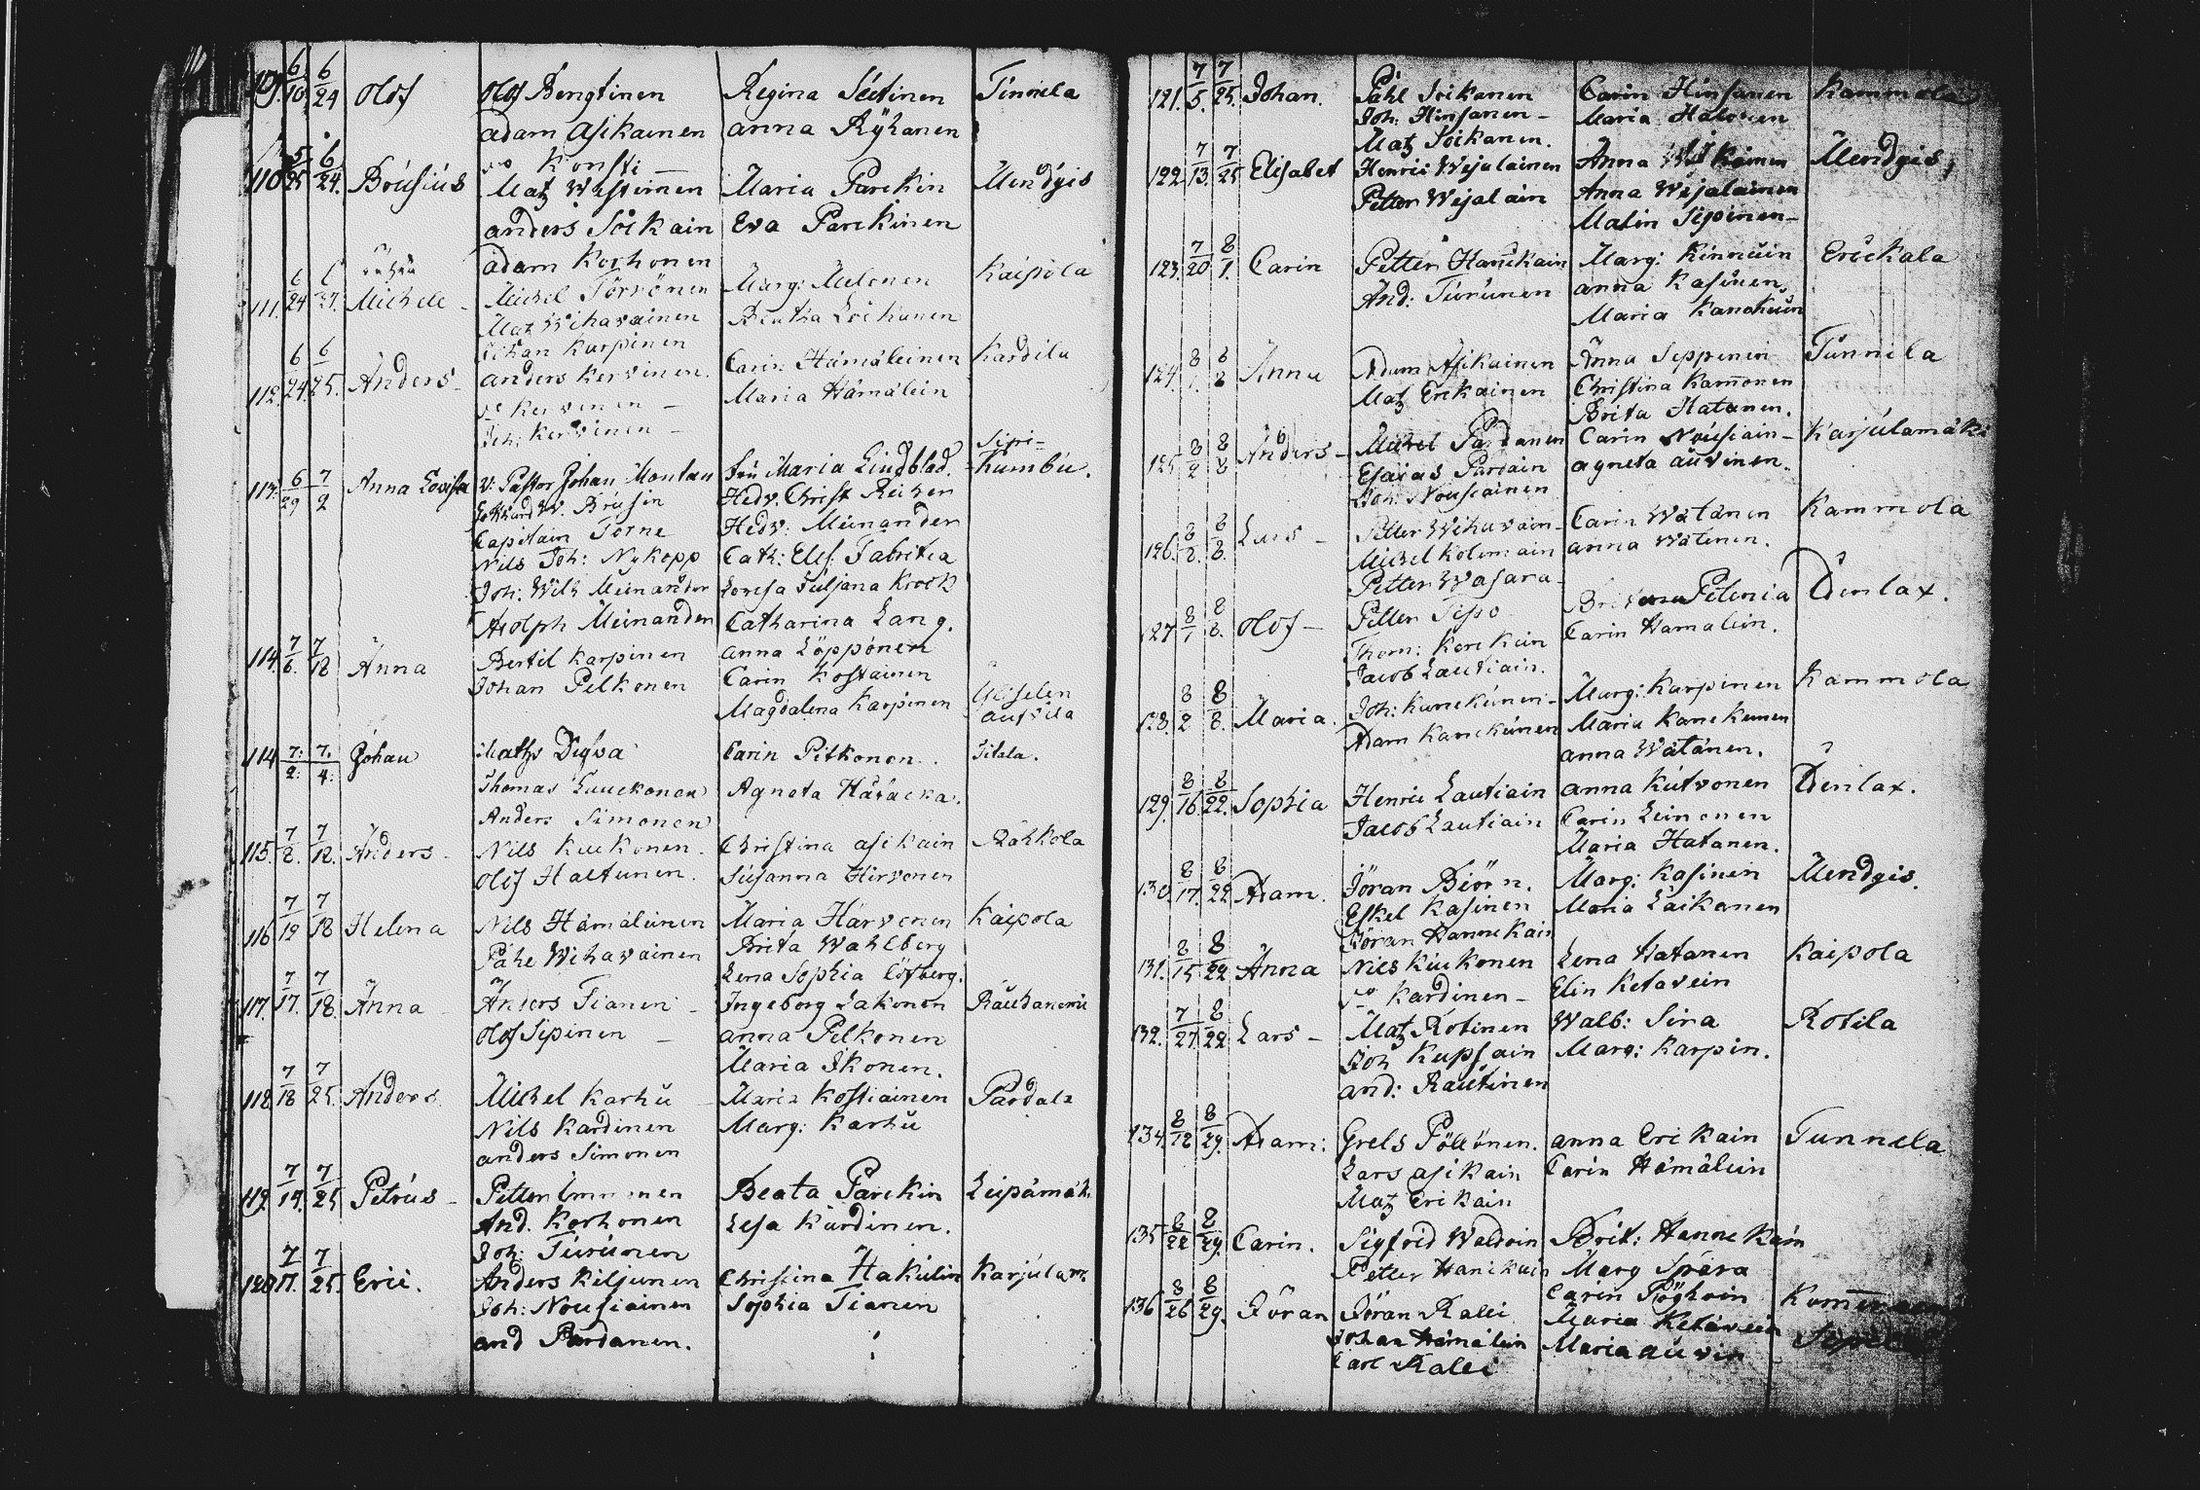 109. 6/10 6/24 Olof Olof Bengtinen Regina Sutinen Tunnela
Adam Asikainen Anna Ryhänen
Konsti
110 5/25 6/24. Brusius Matz Wästinen Maria Parckin Mendyis
Anders Soikain Eva Parckinen
Adam Korhonen
111. 6/24 27. Michell Michel Törrönen Marg: Mulonen Kaipola
Matz Wihavainen Loikanen
Johan Karpinen
112. 6/24 6/25. Anders Anders Kervinen Carin Hämäleinen Kardila
Kervinen Maria Hämälein
Joh: Kervinen
113. 6/29 7/2 Anna Lovisa V: Pastor Johan Montan Fru Maria Lindblad. Kumbu.
W. Brusin Hedv. Christ
Capitain Torne Hedv: Meinander
Nils Joh: Nykopp Cath: Elis: Fabritia
Joh: Wilh Meinander Lovisa Juljana Krook
Adolph Meinander Catharina Lang.
114. 7/6. 7/18 Anna Bertil Karpinen Anna Löppönen
Johan Pelkonen Carin Kostainen
Magdalena Karpinen
114 7:/2: 7:/4: Johan Maths Carin Pitkonen.
Thomas Luuckonen Agneta
Anders Simonen
115. 7/2. 7/12. Anders Nils Kuukonen. Christina Asikain Räkkola
Olof Haltunen. Susanna Hirvonen
116 7/12 7/18 Helena Nils Hämäleinen Maria Harvonen Kaipola
Påhl Wihavainen Brita Wahlberg
Lena Sophia Löfberg.
117. 7/17. 7/18. Anna Anders Tianen Ingeborg Lakonen
Olof Sipinen Anna Pelkonen
Maria Ikonen.
118 7/18 7/25. Anders Michel Karhu Maria Kostiainen Pardala
Nils Kardinen Marg: Karhu
Anders Simonen
119. 7/19. 7/25 Petrus Petter Immonen Beata Parckin Leipämäk:
And. Korhonen Lisa Kardinen.
Joh: Turunen
120 7/17. 7/25. Eric. Anders Kiljunen Christina Hakulin Karjulam
Joh: Nousiainen Sophia Tianen
And Pardanen.
121. 7/5. 7/25. Johan. Påhl Soikanen Carin Hinsanen Kammola
Joh: Hinsanen Maria Halonen
Matz Soikanen.
122. 7/13. 7/25 Elisabet Henric Wejalainen Anna Mendyis
Petter Wejalain Anna Wejalainen
Malin Sipinen
123. 7/20 8/1. Carin Petter Hanckain Marg: Kinnuin Erickala
And: Turunen Anna Kasinen.
Maria
124. 8/1. 8/8 Anna Adam Asikainen Anna Seppenen Tunnila
Matz Erikainen Christina Kamonen
Brita Hatanen.
125 8/2 8/8 Anders Michel Pardanen Carin Nousiain Karjulamäki
Esaias Pardain Agneta Auvinen.
Joh: Nousiainen
126. 8/2. 8/8. Lars Petter Wihavain Carin Watanen Kammola
Michel Kolemain Anna Watanen.
Petter Wasara
127 8/1 8/8. Olof Petter Tepo Pelenia Denlax.
Thom: Korckain Carin Hamalein.
Jacob Lautiain.
128. 8/2 8/8. Maria. Joh: Kanckunen Marg: Karpinen Kammola
Adam Kanckunen Maria Kanckunen
Anna Watanen.
129. 8/16. 8/22. Sophia Henric Lautiain Anna Kutvonen Denlax.
Jacob Lautiain Carin Leinonen
Maria Hatanen.
130. 8/17. 8/22 Adam. Jöran Biörn. Marg: Kasinen Mendyis.
Eskel Kasinen Maria Laikanen
Jöran Hannekain
131. 8/15 8/22 Anna Nils Kiukonen Lena Hatanen Kaipola
Kardinen Elin Ketavein
132. 7/27. 8/22 Lars Matz Rotinen Walb: Sira Rotila
Joh Kupsain Marg: Karpin.
And: Rautinen
134. 8/12 8/29. Adam: Grels Pöllönen. Anna Erikain Tunnela
Lars Asikain Carin Hämälein
Matz Erikain
135 8/22 8/29. Carin. Sigfrid Brit: Hannekain
Petter Hanikain Marg Spåra
136 8/26 8/29. Jöran Jöran Ralli Carin
Johan Hämälein Maria Ketavein
Carl Ralli Maria Auvin